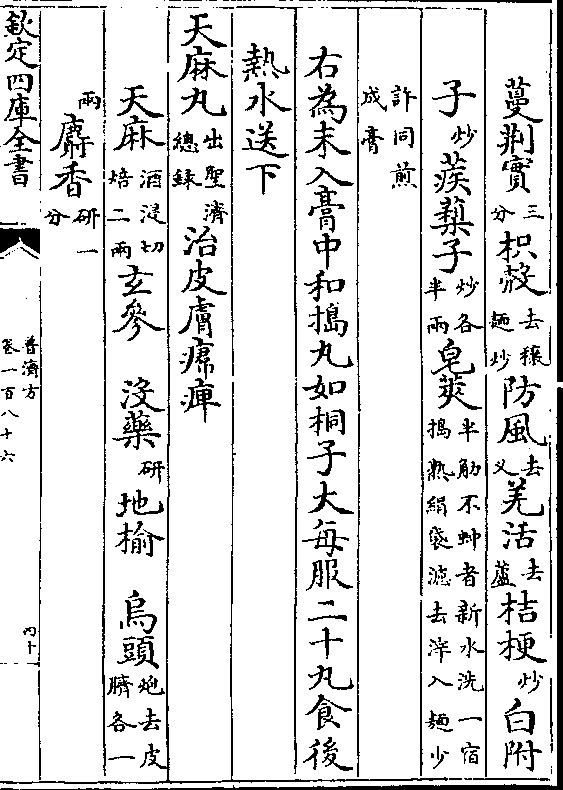 蔓荆實三分枳殻去穰麵炒防風去义羌活去蘆桔梗炒白附
子炒蒺蔾子炒各半兩皂莢半觔不蚛者新水洗一宿搗熟絹袋濾去滓入麵少
許同煎成膏
右為末入膏中和搗丸如桐子大每服二十丸食後
熱水送下
天麻丸出聖濟總錄治皮膚𤸷痺
天麻酒浸切焙二兩玄參 没藥研地榆 烏頭炮去皮臍各一
兩麝香研一分
欽定四庫全書
普濟方
卷一百八十六
四十